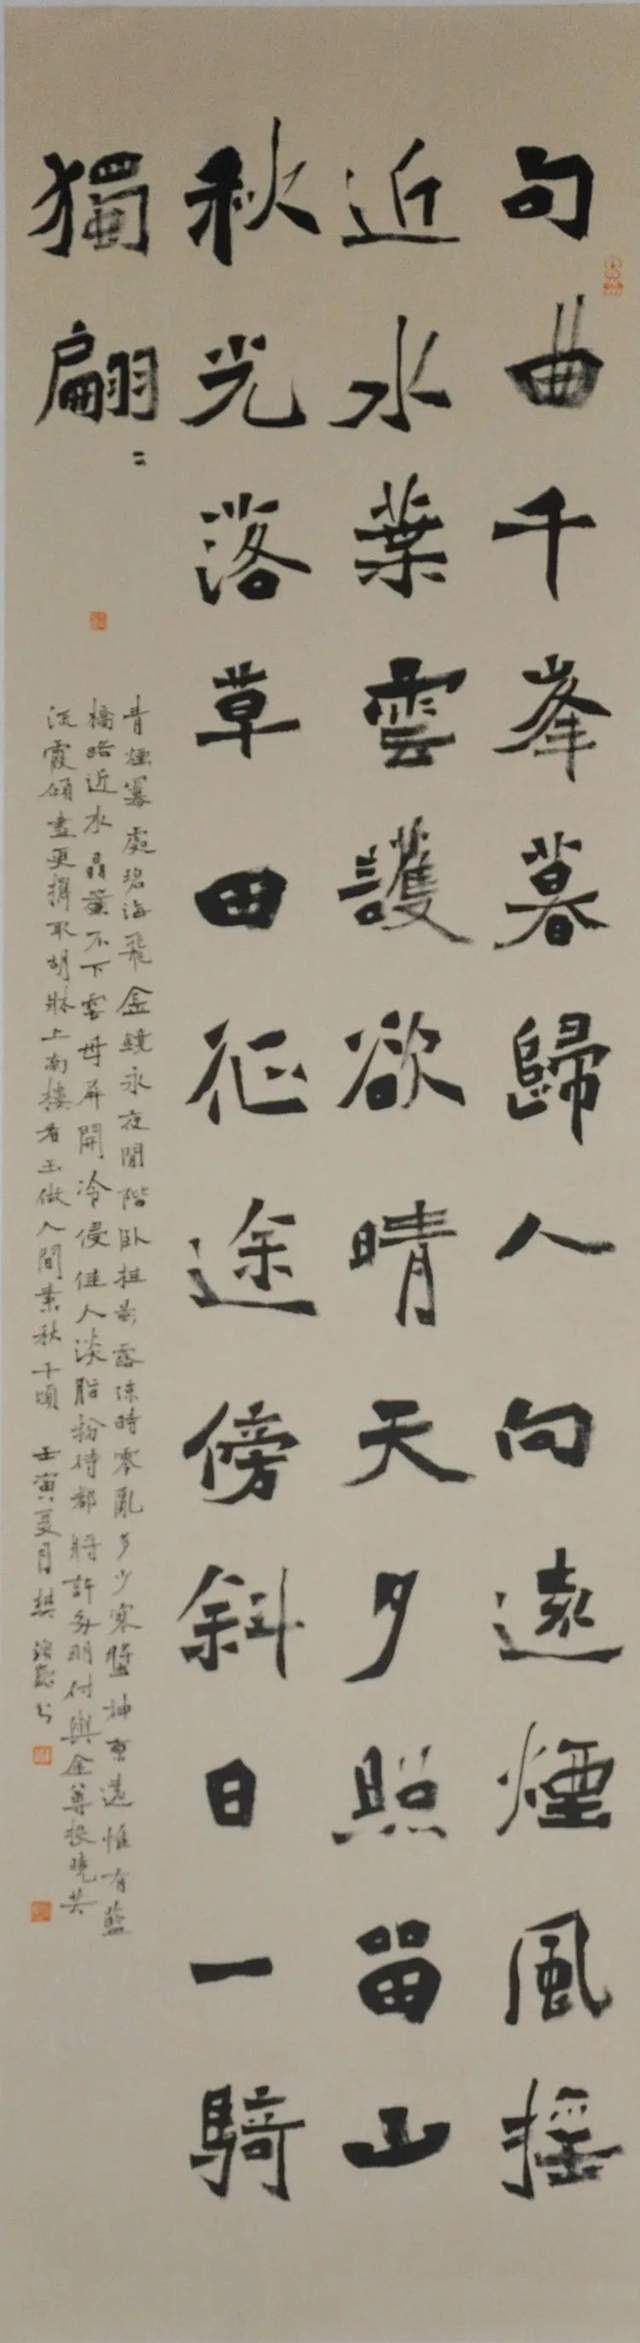 句曲千峯暮歸人向遠煙風搖
近水葉雲護欲晴天夕照留山
秋光落草田征途傍斜日一騎
獨翩〻
青煙冪處碧海飛金鏡永夜閒階臥桂影露涼時零亂多少寒螿神京遠惟有藍
橋路近水晶簾不下雲母屏開冷侵佳人淡脂粉待都將許多明付與金尊投曉共
流霞傾盡更攜取胡牀上南樓看玉做人間素秋千頃 壬寅夏月樊